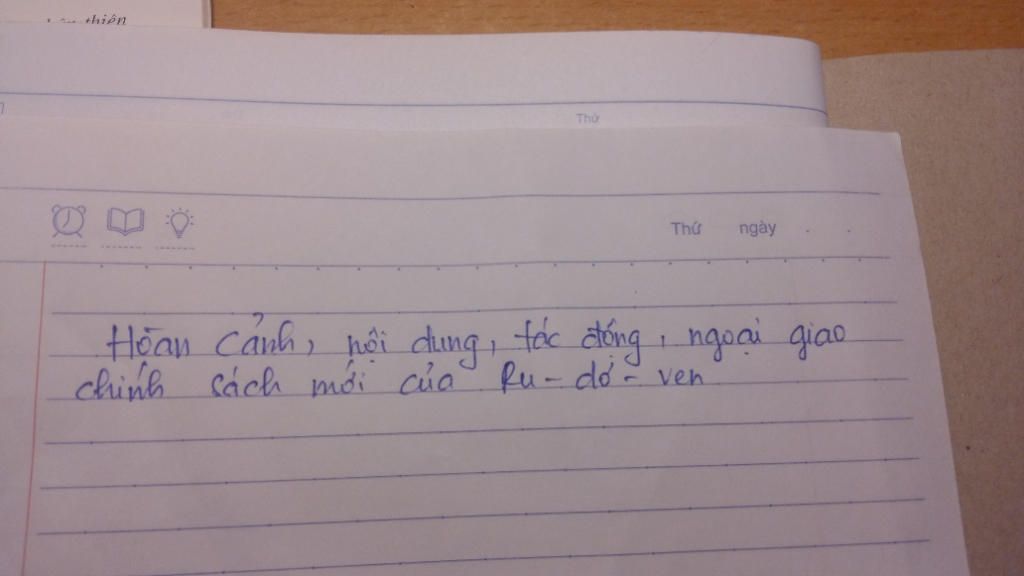 thiên
Thứ
Thứ ngày
Hoàn cảnh, nội dung, tác động, ngoại giao
chính sách mới của Ru-dơ-ven